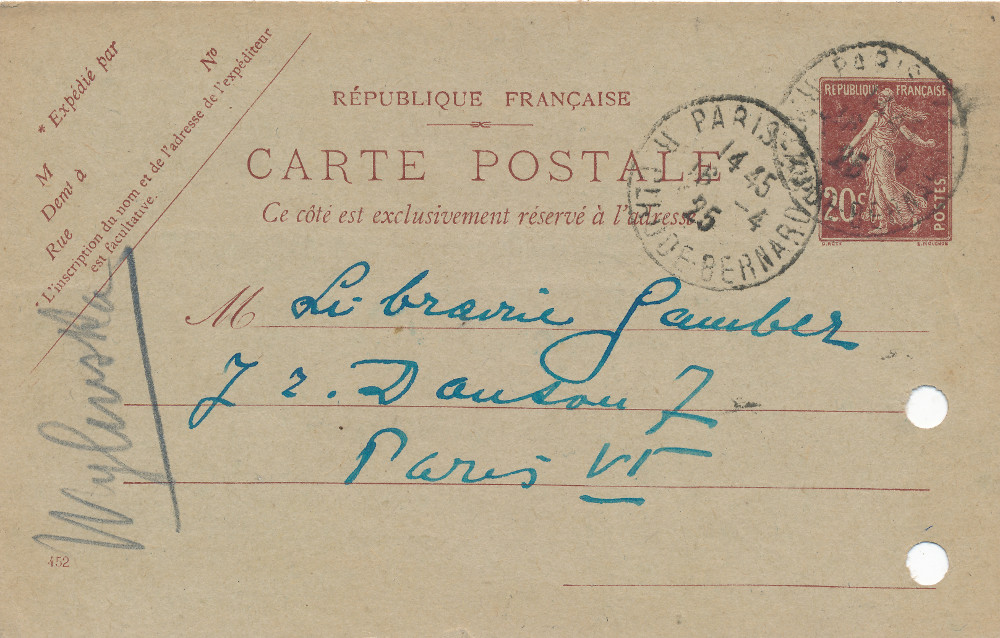 * Expédié par
M
Nº
Demt à
Rue
L'inscription du nom et de l'adresse de l'expéditeur
est facultative.
RÉPUBLIQUE FRANÇAISE
CARTE POSTALE
Ce côté est exclusivement réservé à l'adresse.
PARIS
14 45
16 -4
25
CLAUDE-BERNARD
PARIS
25
RÉPUBLIQUE FRANÇAISE
20c
POSTES
M Librairie Gamber
7 r. Danton 7
Paris VI
452